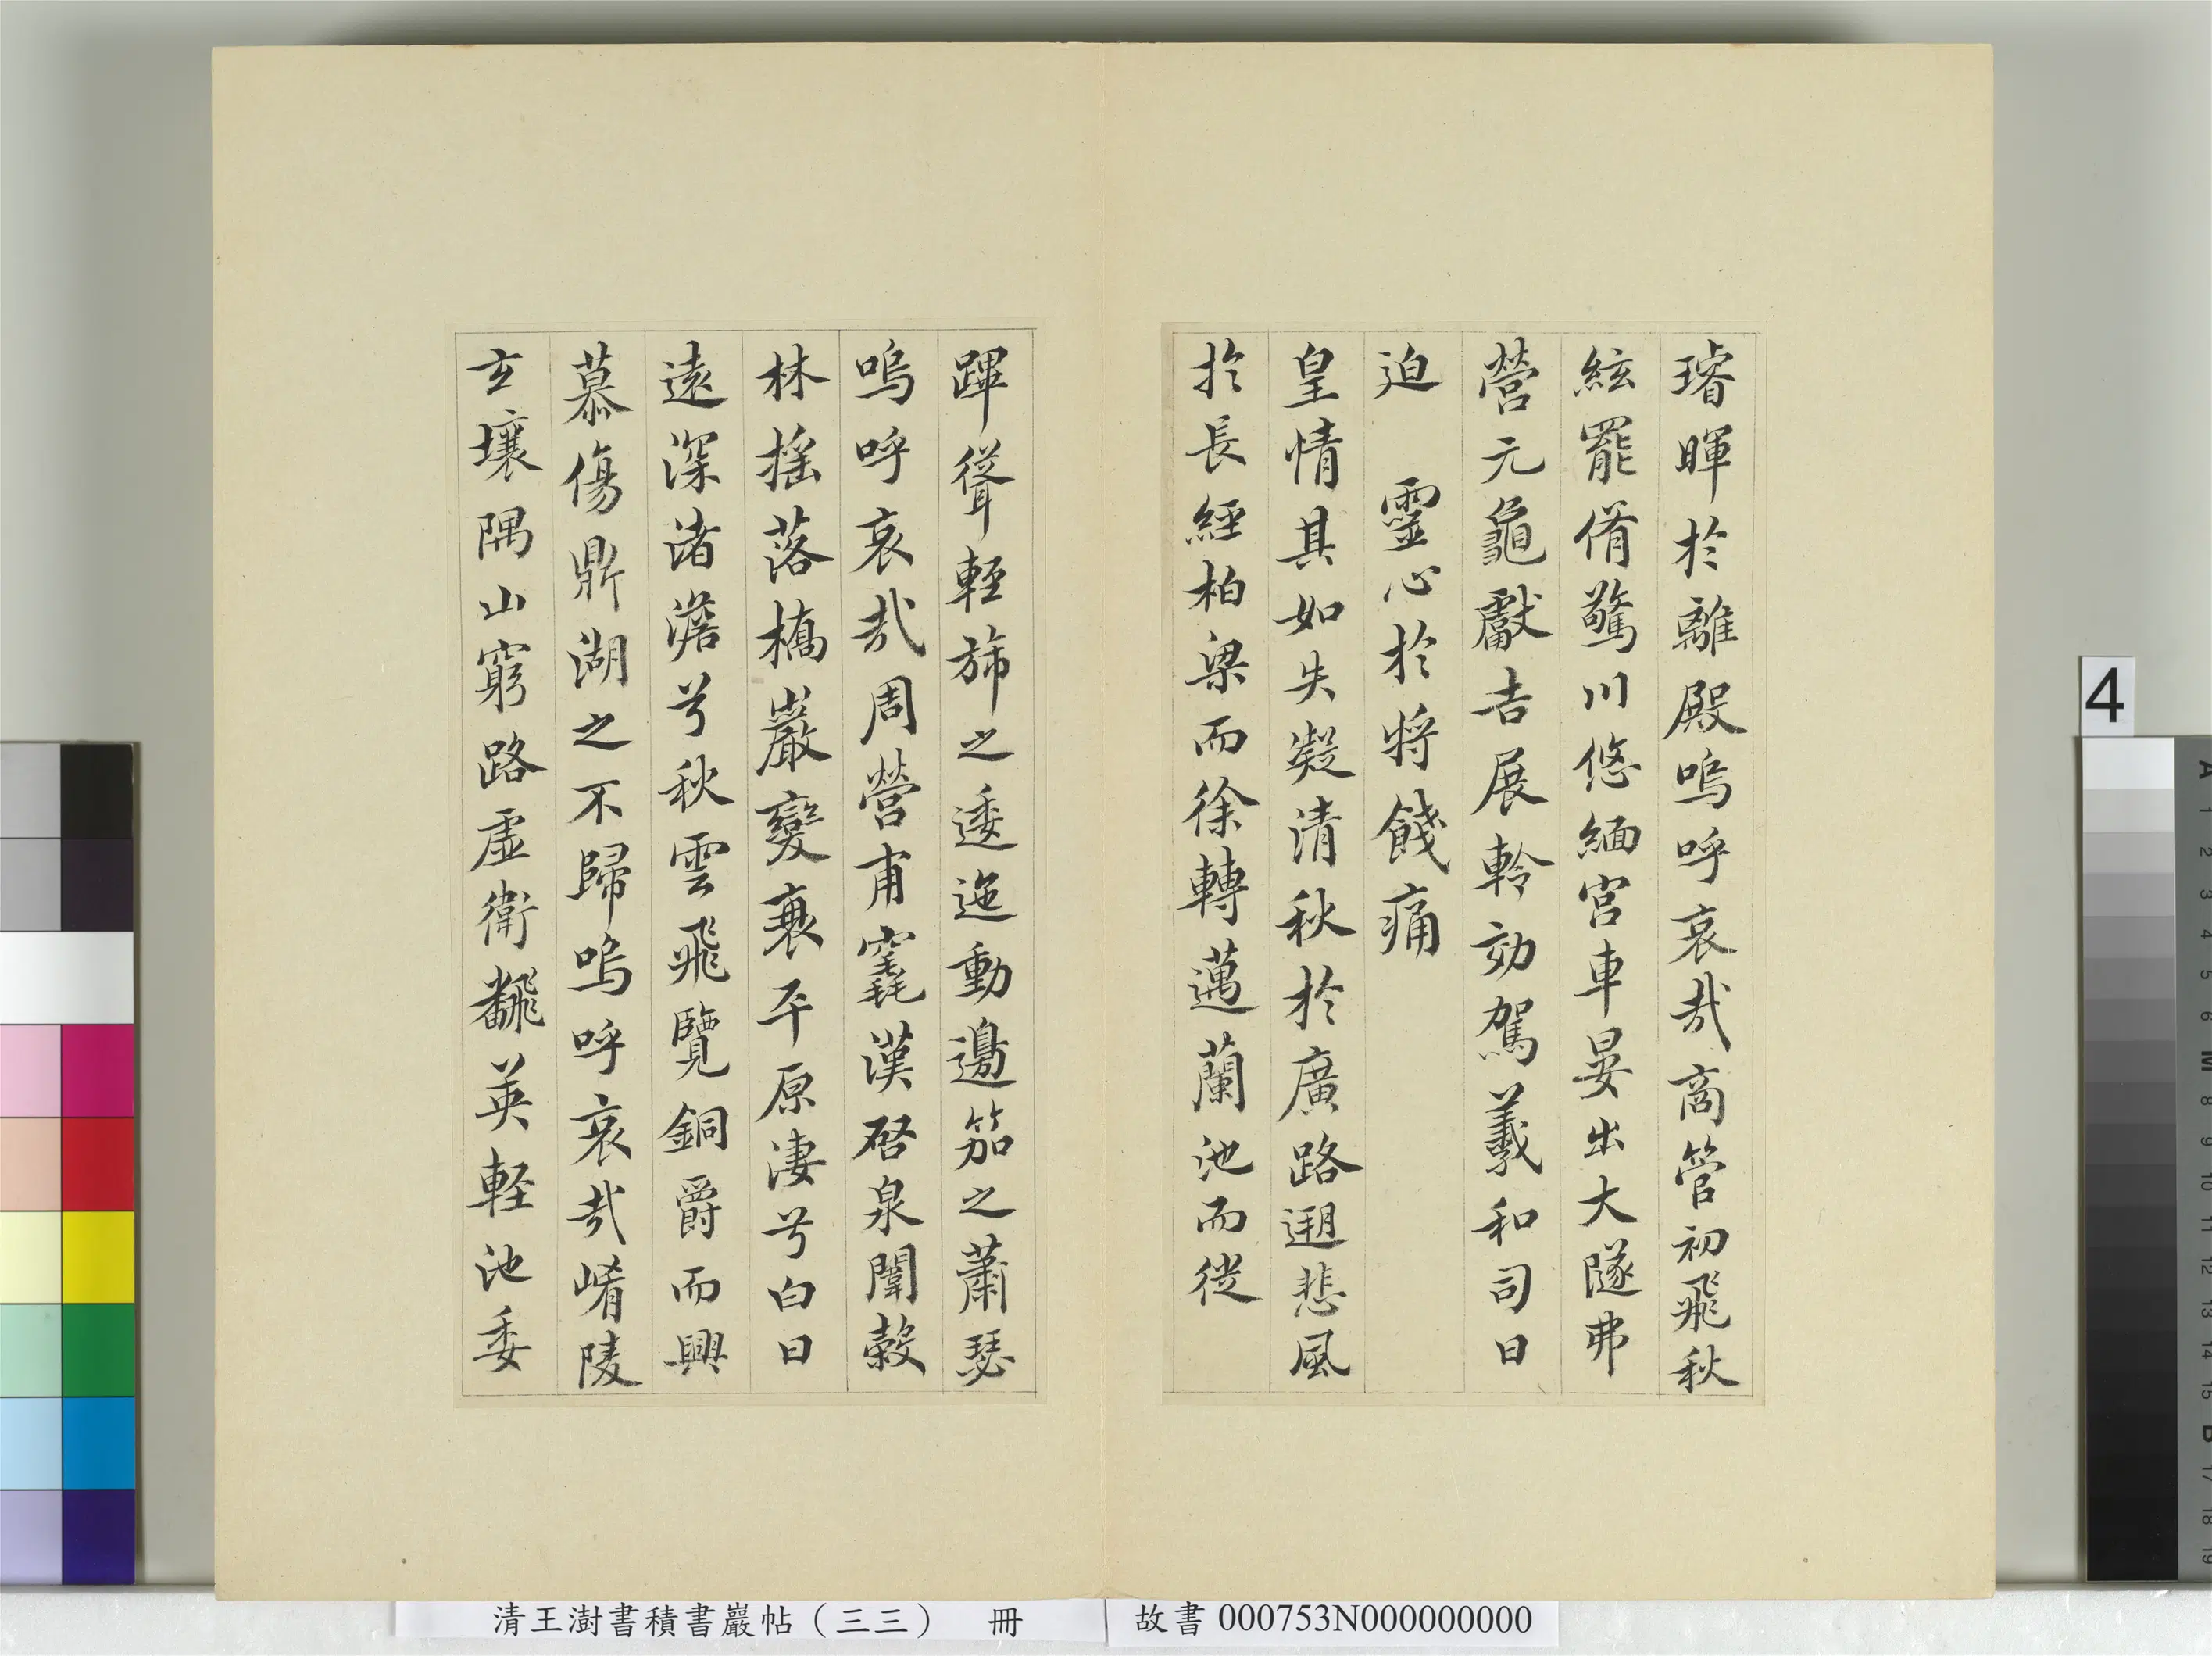 璿暉於離殿嗚呼哀哉商管初飛秋
絃罷脩驚川悠緬宮車晏出大隧弗
營元龜獻吉展軨効駕羲和司日
迫　靈心於將餞痛
皇情其如失凝清秋於廣路遡悲風
於長經柏梁而徐轉邁蘭池而從
蹕聳輕旆之逶迤動邊笳之蕭瑟
嗚呼哀哉周營甫竁漢啓泉闈穀
林搖落橋巖變衰平原淒兮白日
遠深渚澹兮秋雲飛覽銅爵而興
慕傷鼎湖之不歸嗚呼哀哉崤陵
玄壤隅山窮路虛衛飜英輕池委
清王澍書積書巖帖（三三）　冊
故書000753N000000000
4